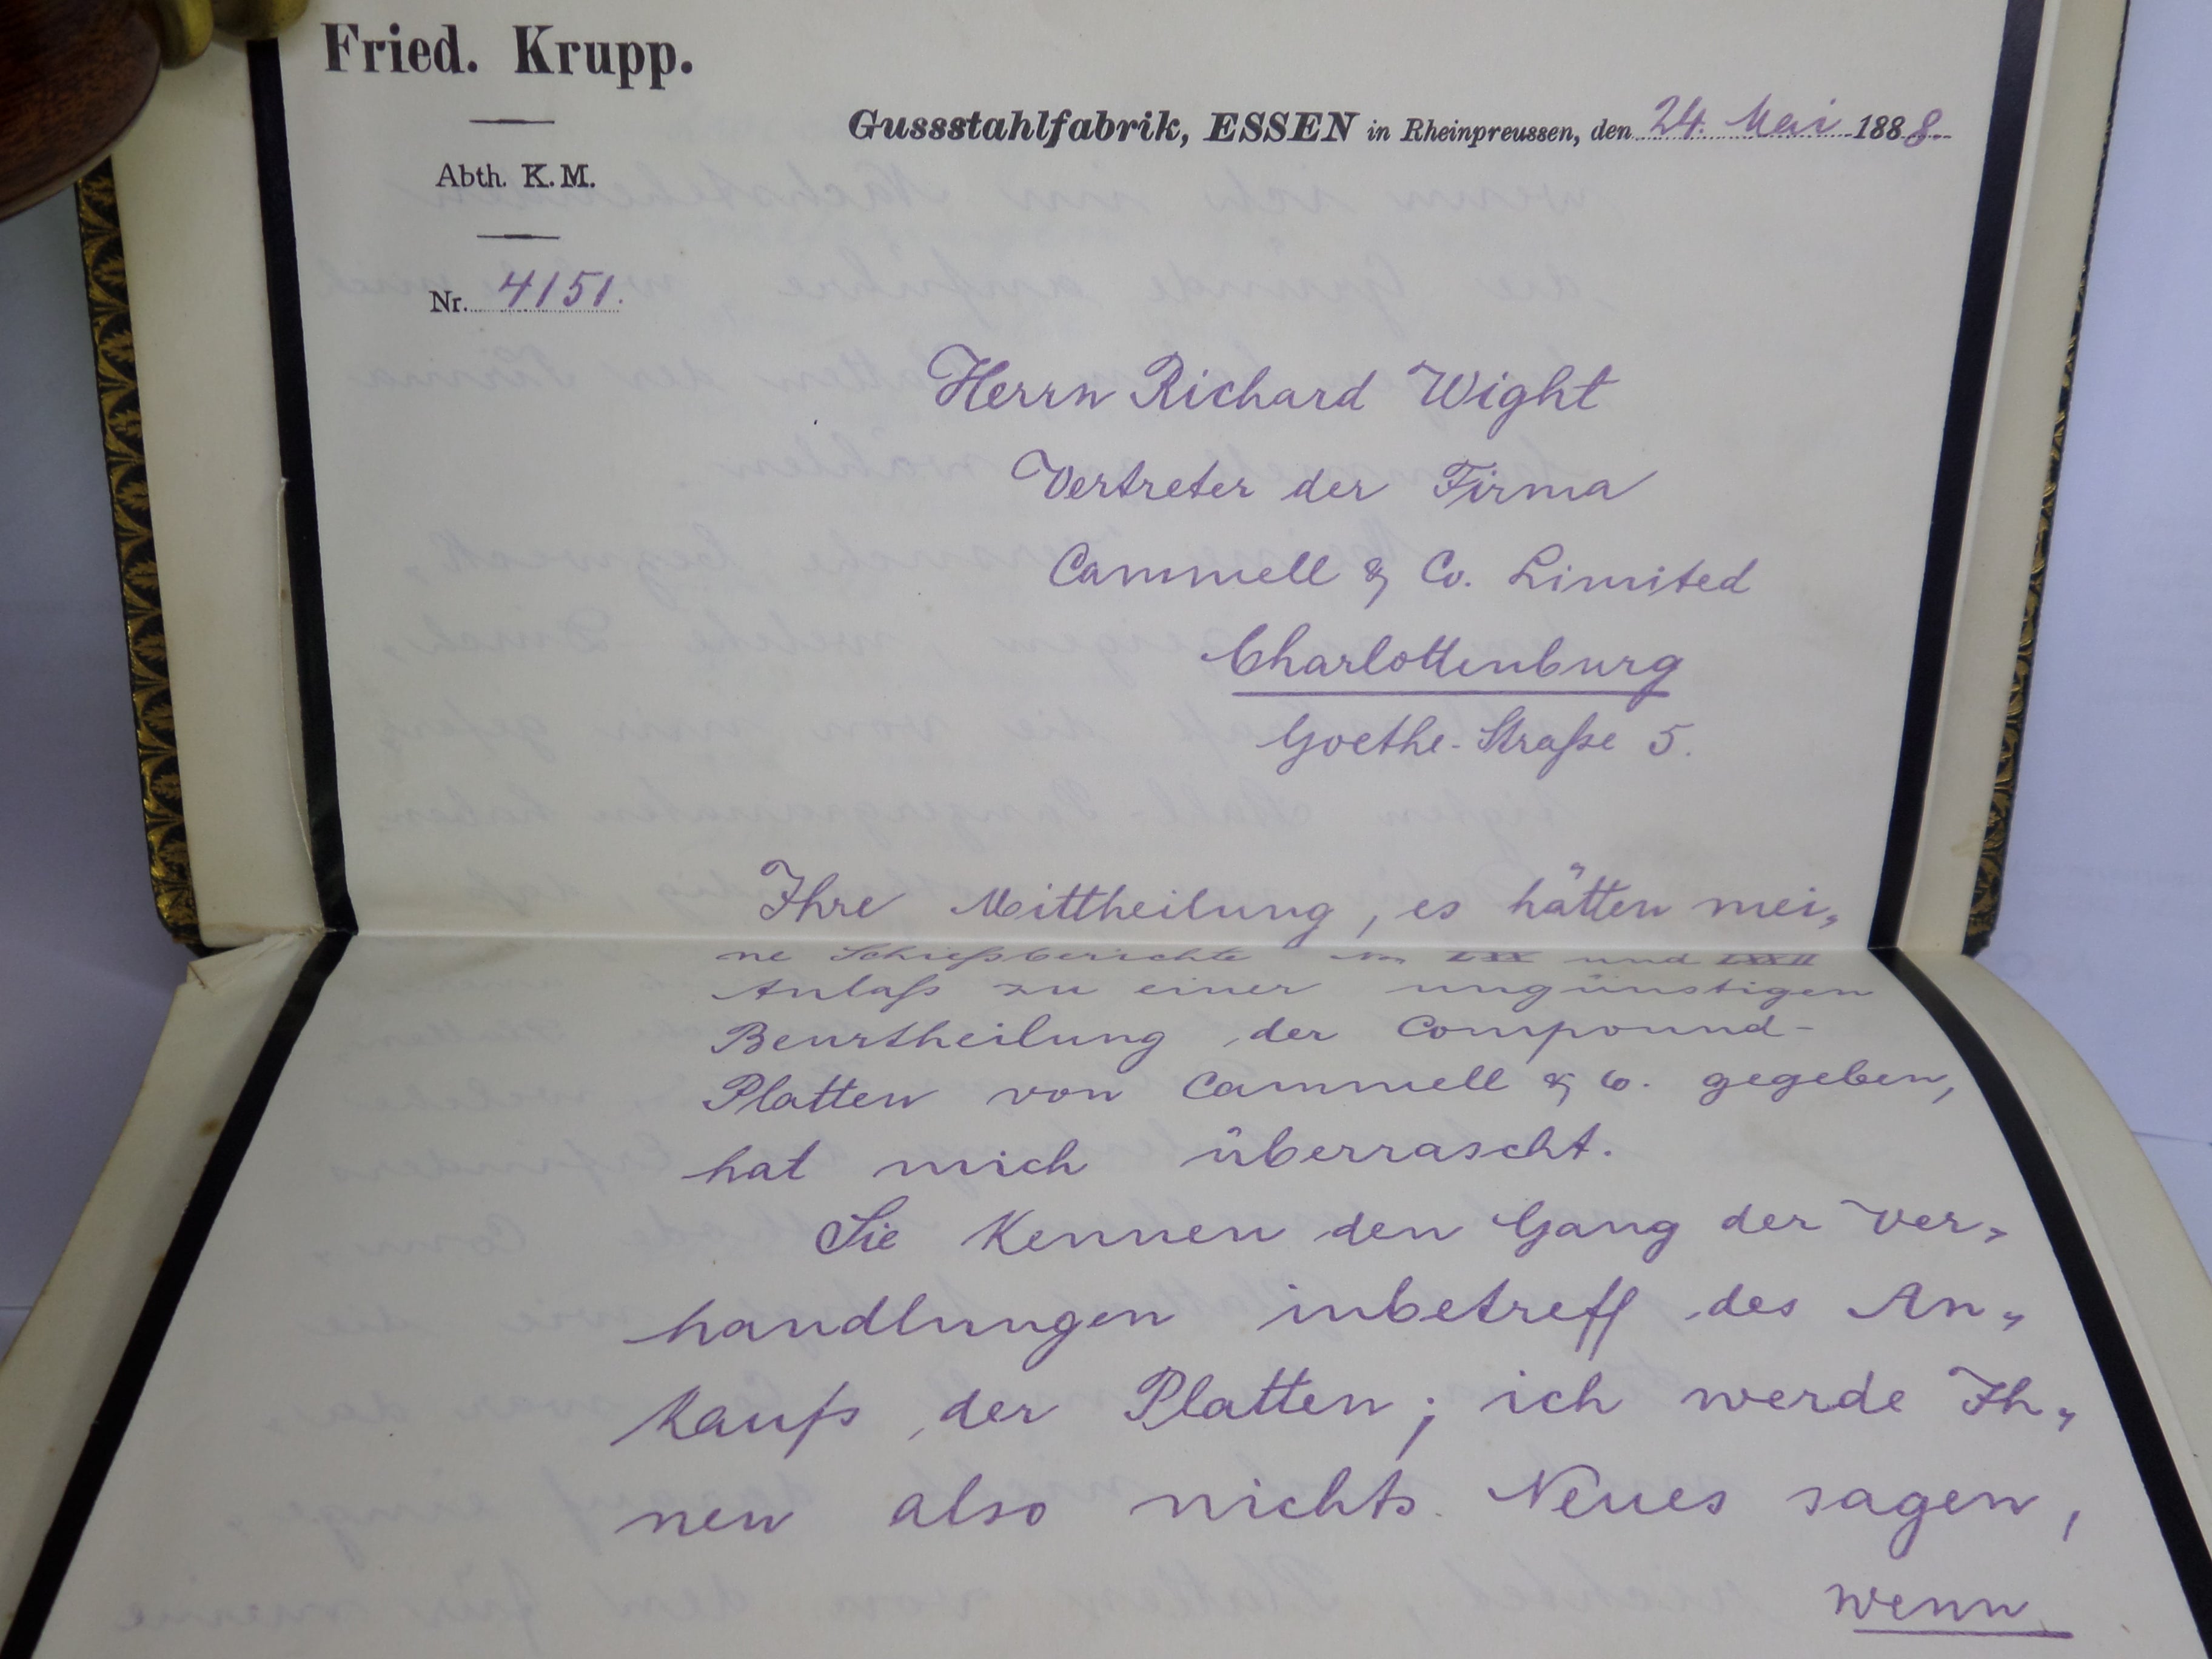 Fried. Krupp.
Gussstahlfabrik, ESSEN in Rheinpreussen, den 24. Mai 1888.
Abth. K. M.
Nr. 4151.
Herrn Richard Wight
Vertreter der Firma
Cammell & Co. Limited
Charlottenburg
Goethe-Straße 5.
Ihre Mittheilung, es hätten mei„
ne Schießberichte LXX und LXXII
Anlaß zu einer ungünstigen
Beurtheilung der Compound-
Platten von Cammell & Co. gegeben,
hat mich überrascht.
Sie kennen den Gang der Ver„
handlungen inbetreff des An„
kaufs der Platten; ich werde Ih„
nen also nichts Neues sagen,
wenn